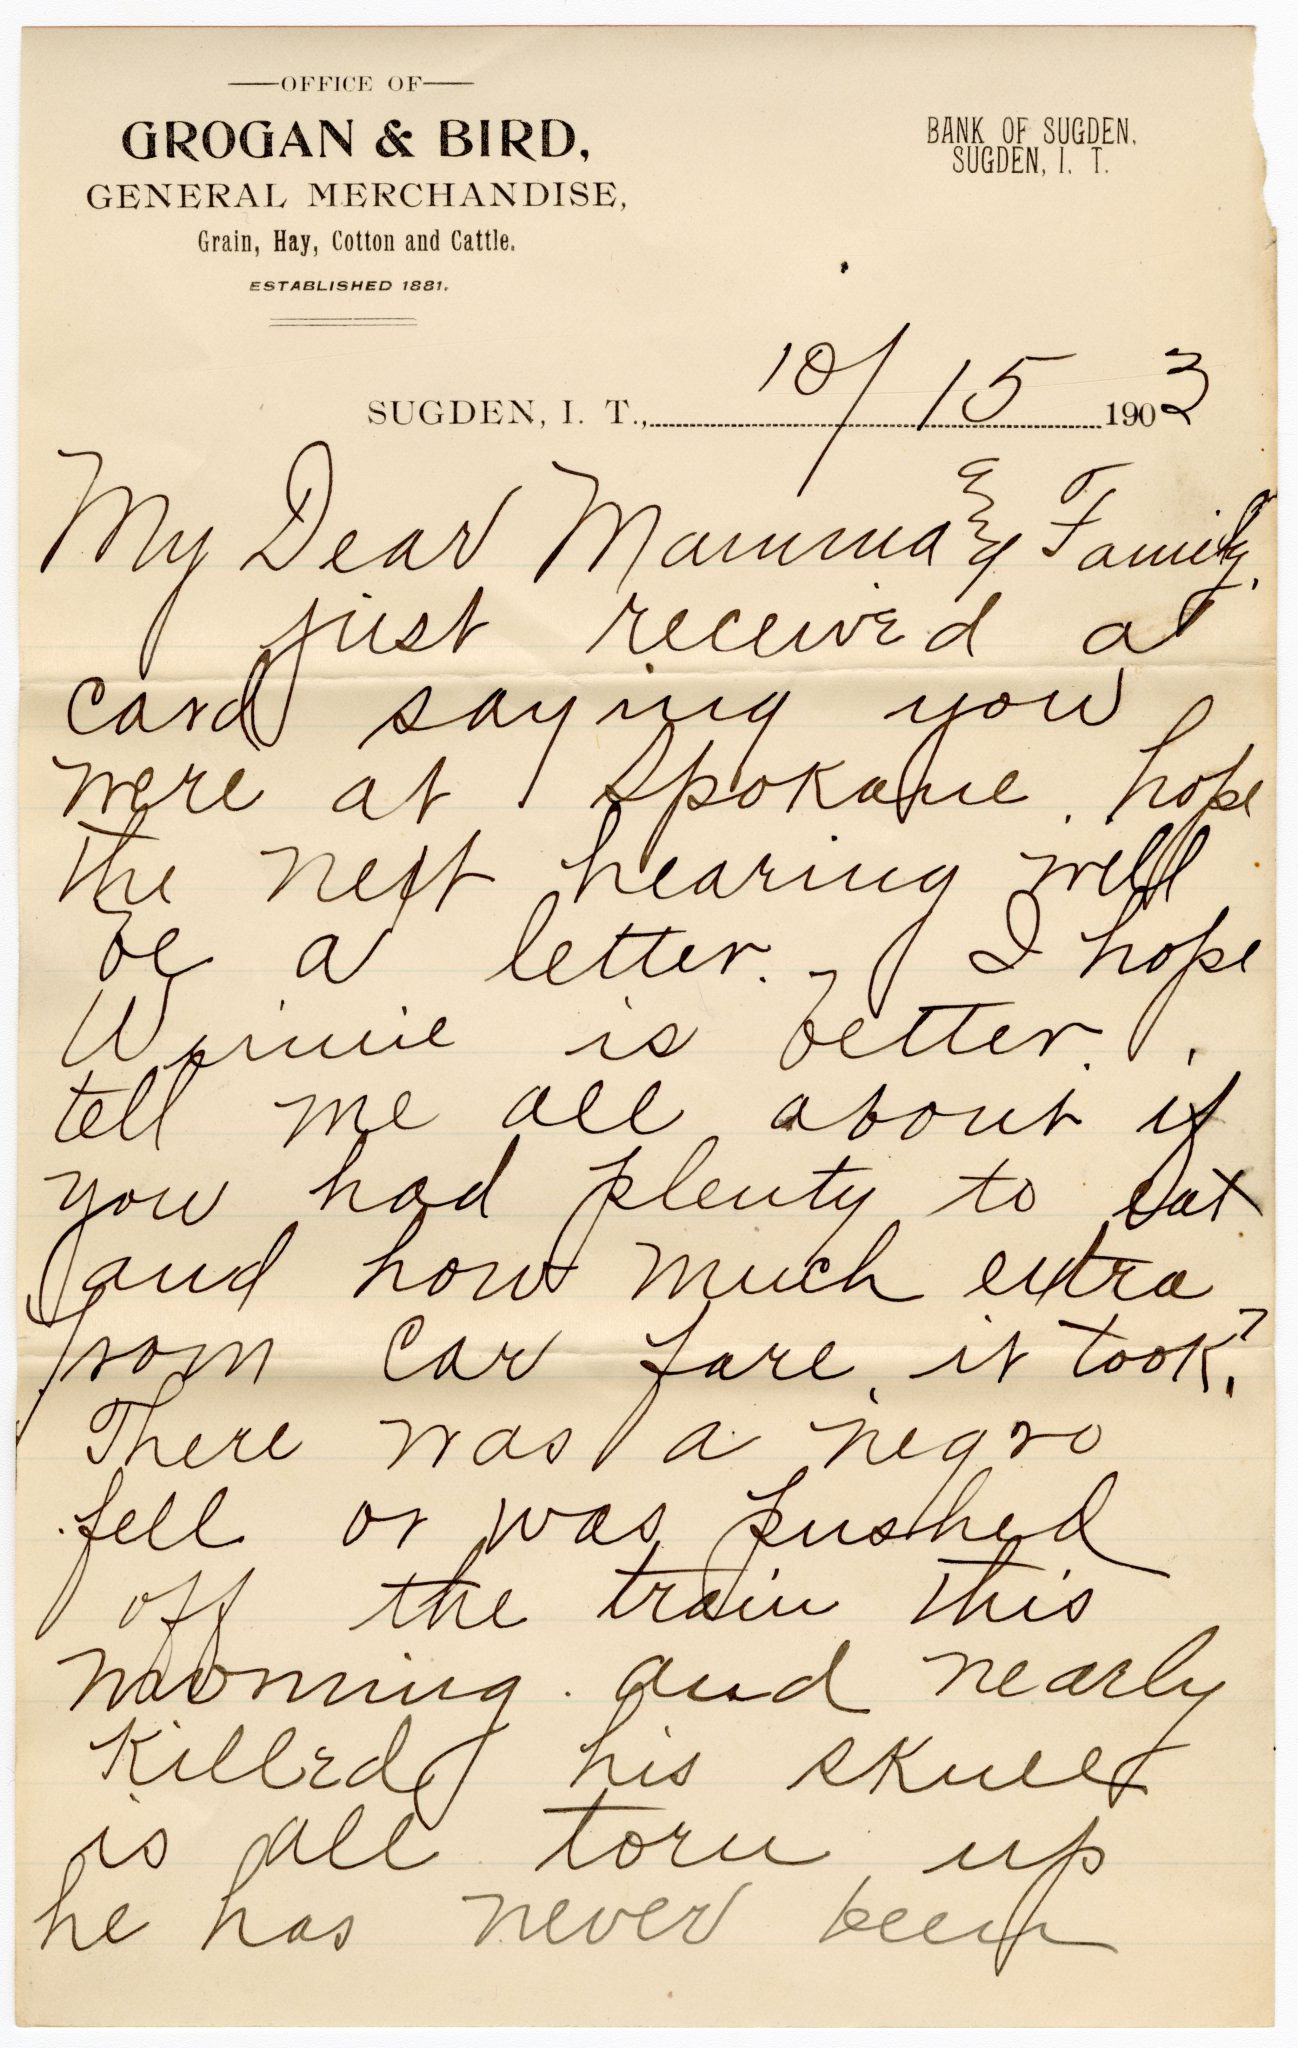 OFFICE OF
GROGAN & BIRD,
GENERAL MERCHANDISE,
Grain, Hay, Cotton and Cattle.
ESTABLISHED 1881.
BANK OF SUGDEN,
SUGDEN, I. T.
SUGDEN, I. T., 10/15 1903
My Dear Mamma & Family,
just received a
card saying you
were at Spokane. hope
the next hearing will
be a letter. I hope
Winnie is better.
tell me all about if
you had plenty to eat
and how much extra
from car fare it took?
There was a negro
fell or was pushed
off the train this
morning. and nearly
killed his skull
is all torn up
he has never been